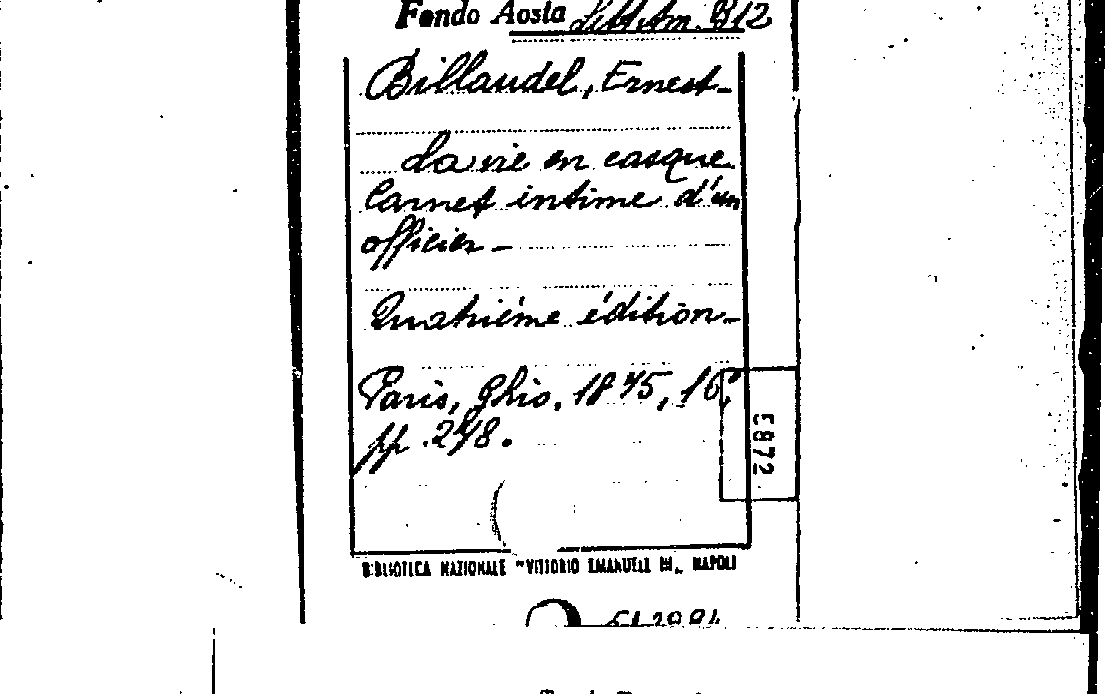 Fondo Aosta Lett. Am. B12
Billaudel, Ernest-
La vie en casque.
Carnet intime d'un
officier-
Quatrième édition-
Paris, Ghio, 1875, 16°,
pp. 248.
E872
BIBLIOTECA NAZIONALE "VITTORIO EMANUELE III„ NAPOLI